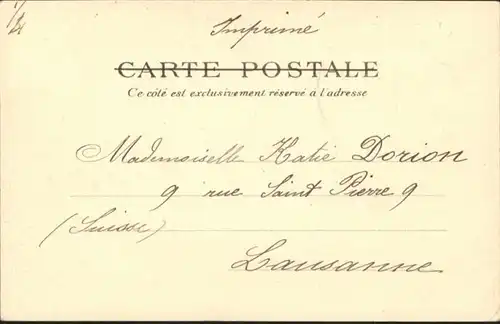 Imprimé
CARTE POSTALE
Ce côté est exclusivement réservé à l'adresse
Mademoiselle Katie Dorion
9 rue Saint Pierre 9
(Suisse)
Lausanne